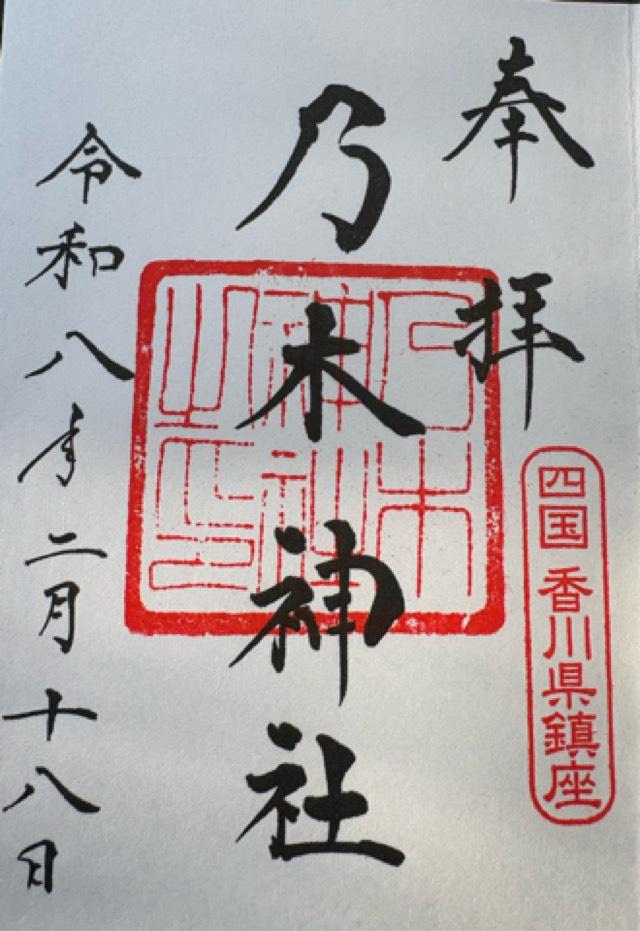 奉拝
四国 香川県鎮座
乃木神社
乃木神社之印
令和八年二月十八日